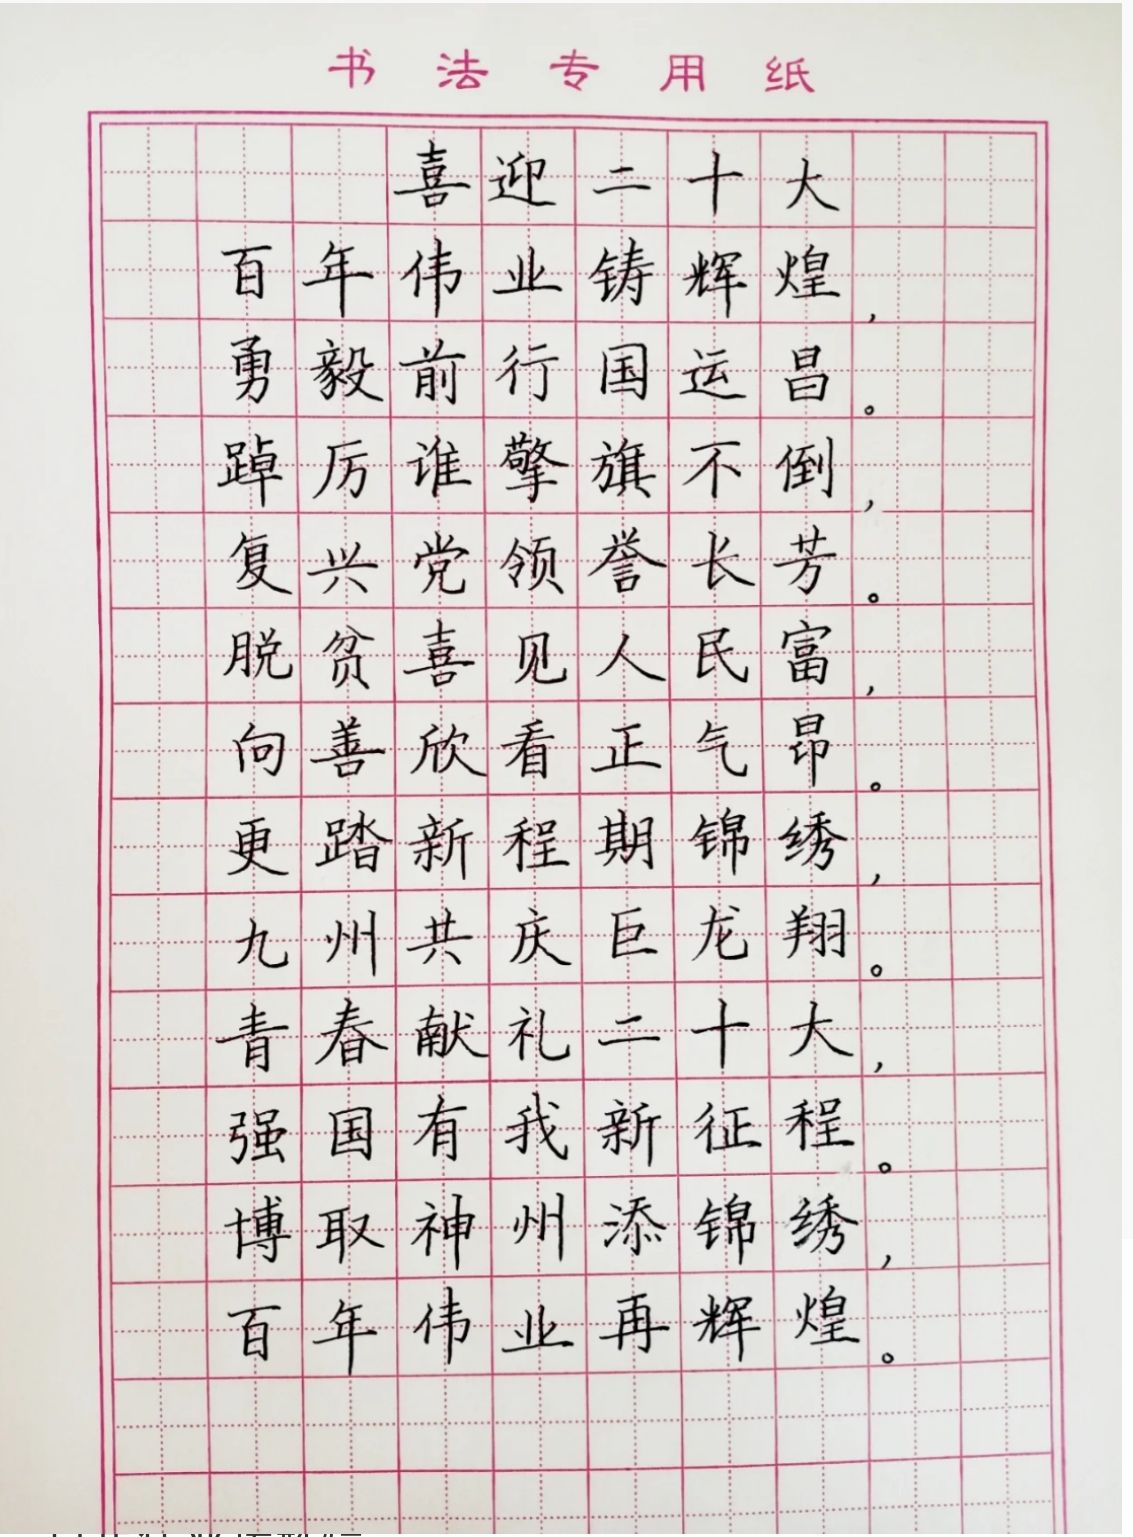 书法专用纸
喜迎二十大
百年伟业铸辉煌，
勇毅前行国运昌。
踔厉谁擎旗不倒，
复兴党领誉长芳。
脱贫喜见人民富，
向善欣看正气昂。
更踏新程期锦绣，
九州共庆巨龙翔。
青春献礼二十大，
强国有我新征程。
博取神州添锦绣，
百年伟业再辉煌。